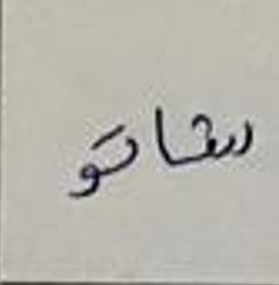 رشاتو